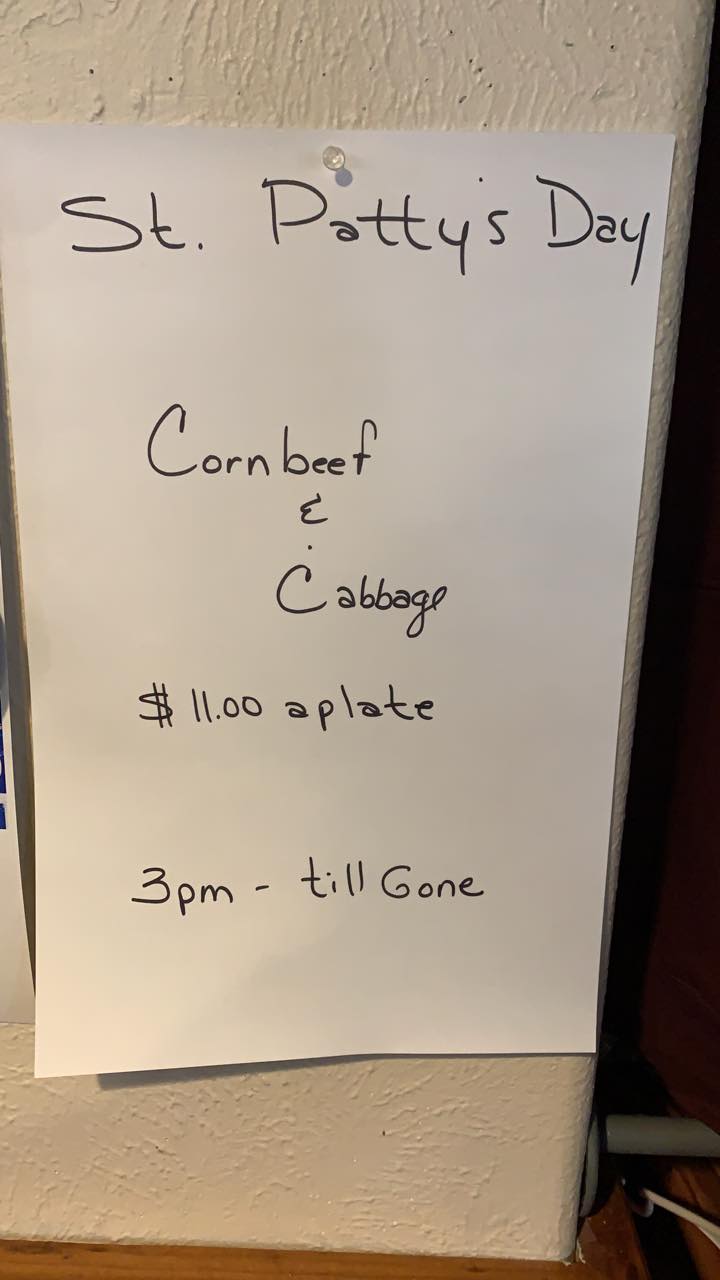 St. Patty's Day
Corn beef
&
Cabbage
$11.00 a plate
3pm - till Gone